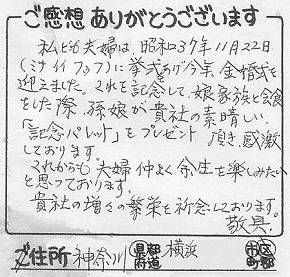 ご感想ありがとうございます
私ども夫婦は、昭和37年11月22日
(ミナイイフウフ)に挙式あげ今年、金婚式を
迎えました。それを記念して、娘家族と会食
をした際、孫娘が貴社の素晴しい
「記念パレット」をプレゼント頂き、感激
しております。
これからも夫婦仲よく余生を楽しみたい
と思っております。
貴社の増々の繁栄を祈念しております。
敬具.
ご住所 神奈川 都道府県 横浜 市区町郡